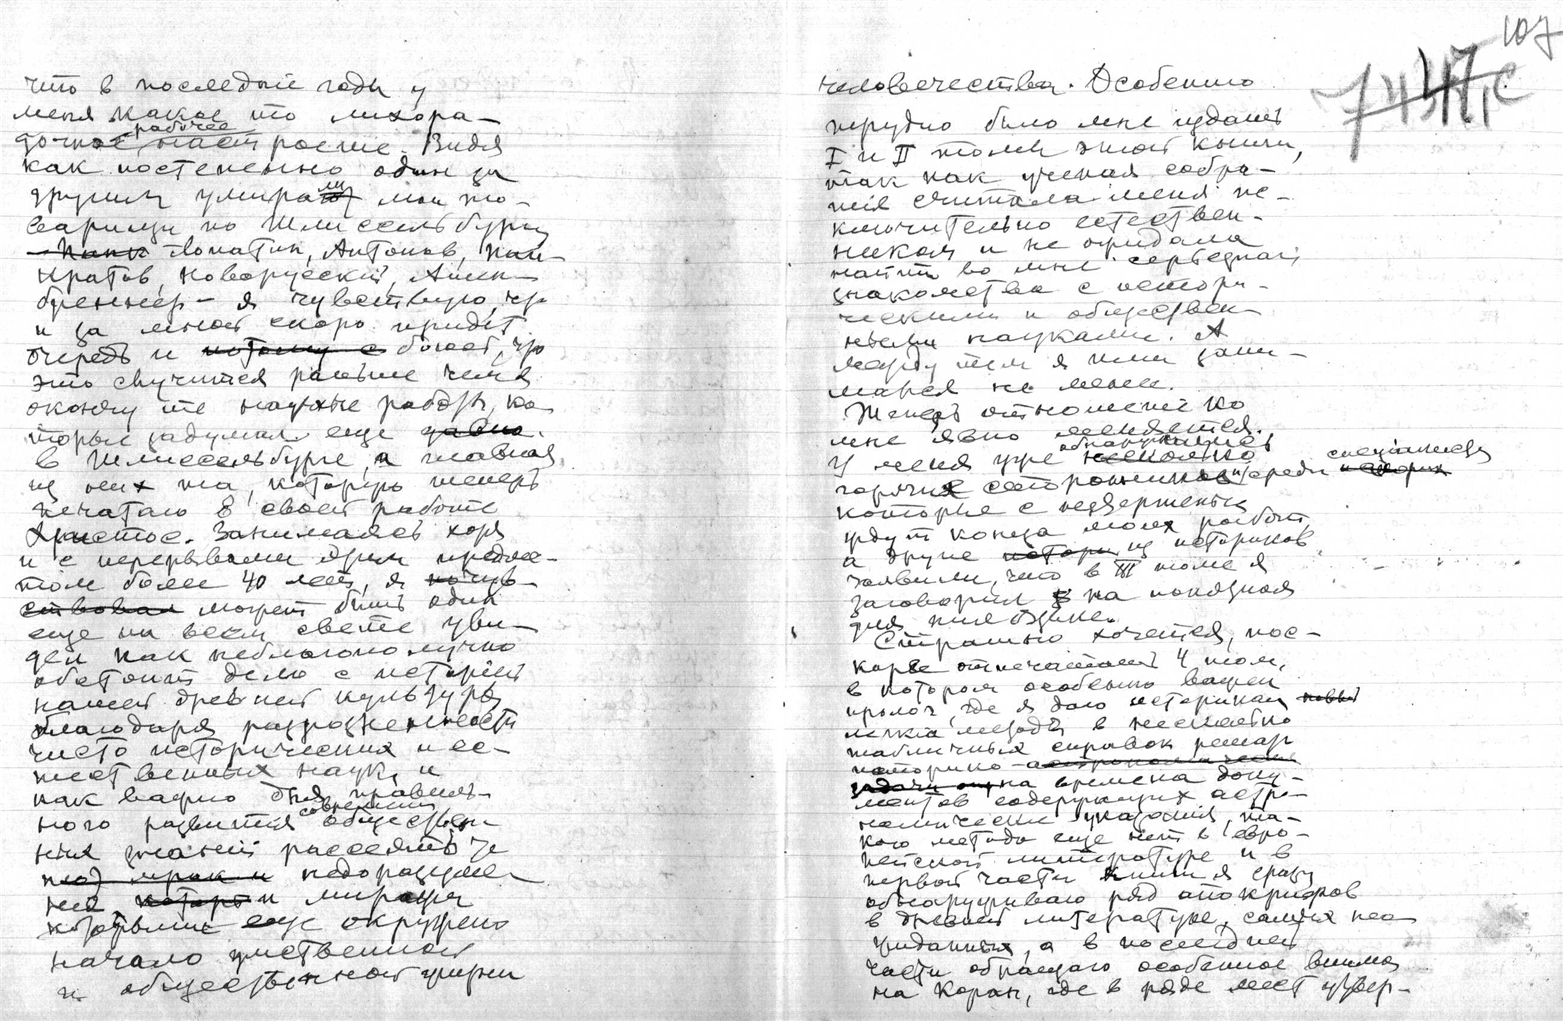 что в последние годы у
меня какое то лихора-
дочное рабочее настроение. Видя
как постепенно один за
другим умирали мои то-
варищи по Шлиссельбургу
Лопатин, Антонов, Пан-
кратов, Новорусский, Ашен-
бреннер – я чувствую, что
и за мной скоро придёт
очередь и потому с боюсь, что
это случится раньше чем я
окончу те научные работы, ко-
торые задумал еще давно
в Шлиссельбурге, и главная
из них та, которую теперь
печатаю в своей работе
Христос. Занимаясь хотя
и с перерывами этим предме-
том более 40 лет, я почув-
ствовал может быть один
еще на всем свете уви-
дел как неблагополучно
обстоит дело с историей
нашей древней культуры
благодаря разрозненности
чисто исторических и ес-
тественных наук, и
как важно для правиль-
ного развития современных обществен-
ных знаний рассеять те
мрак и недоразуме
ния и миражи
которыми еще окружено
начало умственной
и общественной жизни
107
7431/7, с
человечества. Особенно
трудно было мне издать
I и II томы этой книги,
так как ученая собра-
тия считала меня ис-
ключительно естествен-
ником и не ожидала
найти во мне серьезный
знакомства с истори-
ческими и обществен-
ными науками. А
между тем я ими зани-
мался не менее.
Теперь отношение ко
мне явно меняется.
У меня уже обнаружились несколько
горячих сторонников среди специалистов
которые с нетерпением
ждут конца моих работ,
а другие из историков
заявили, что в III томе я
заговорил на понятном
для них языке.
Страшно хочется, пос-
корее отпечатать 4 том,
в котором особенно важен
пролог, где я даю историкам новый
метод в несколько
табличных справок решать
историко-астрономические
задачи на времена доку-
ментов содержащих астро-
номические указания, та-
кого метода еще нет в евро-
пейской литературе и в
первой части книги я сразу
обнаруживаю ряд апокрифов
в древней литературе, самых нео-
жиданных, а в последней
части обращаю особенное внима
на Коран, где в ряде мест утвер-